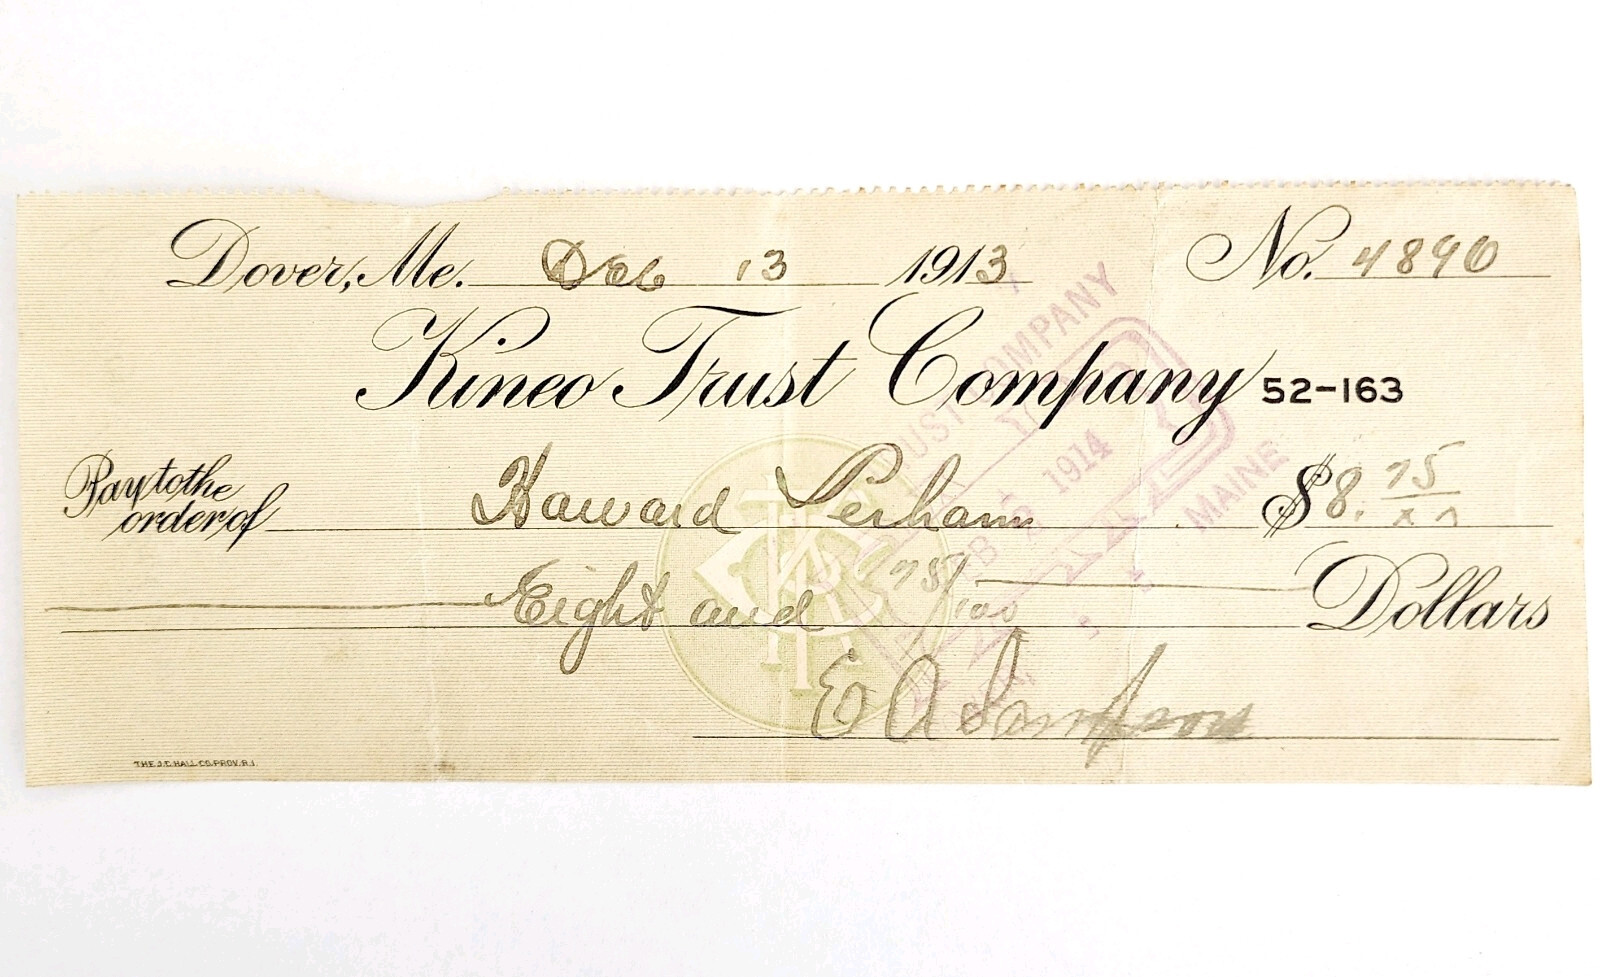 Dover, Me. Dec 13 1913 No. 4890
Kineo Trust Company 52-163
Pay to the order of Haward Perham $8. 75/xx
Eight and 75/100 Dollars
E A Sampson
THE J.C. HALL CO. PROV. R.I.
TRUST COMPANY
PAYED
FEB 2 1914
MAINE